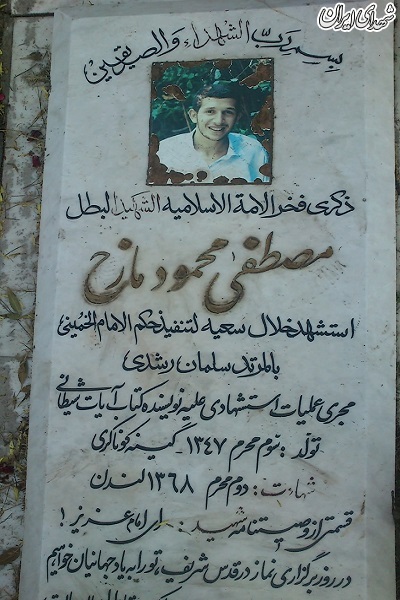 شهدای ایران
بسم رب الشهداء والصدیقین
ذکری فخر الامة الاسلامیه الشهید البطل
مصطفی محمود مازح
استشهد خلال سعیه لتنفیذ حکم الامام الخمینی
بالمرتد سلمان رشدی
مجری عملیات استشهادی علیه نویسنده کتاب آیات شیطانی
تولد : سوم محرم ۱۳۴۷ ـ گینه کوناکری
شهادت : دوم محرم ۱۳۶۸ لندن
قسمتی از وصیتنامه شهید : ای امام عزیز !
در روز برگزاری نماز در قدس شریف ، تو را به یاد جهانیان خواهیم